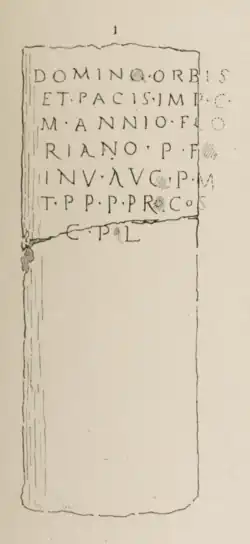 1
DOMINO·ORBIS
ET·PACIS·IMP·C·
M·ANNIO·FLO
RIANO·P·F
INV·AVG·P·M
T·P P·P·PROCOS
C·P·L